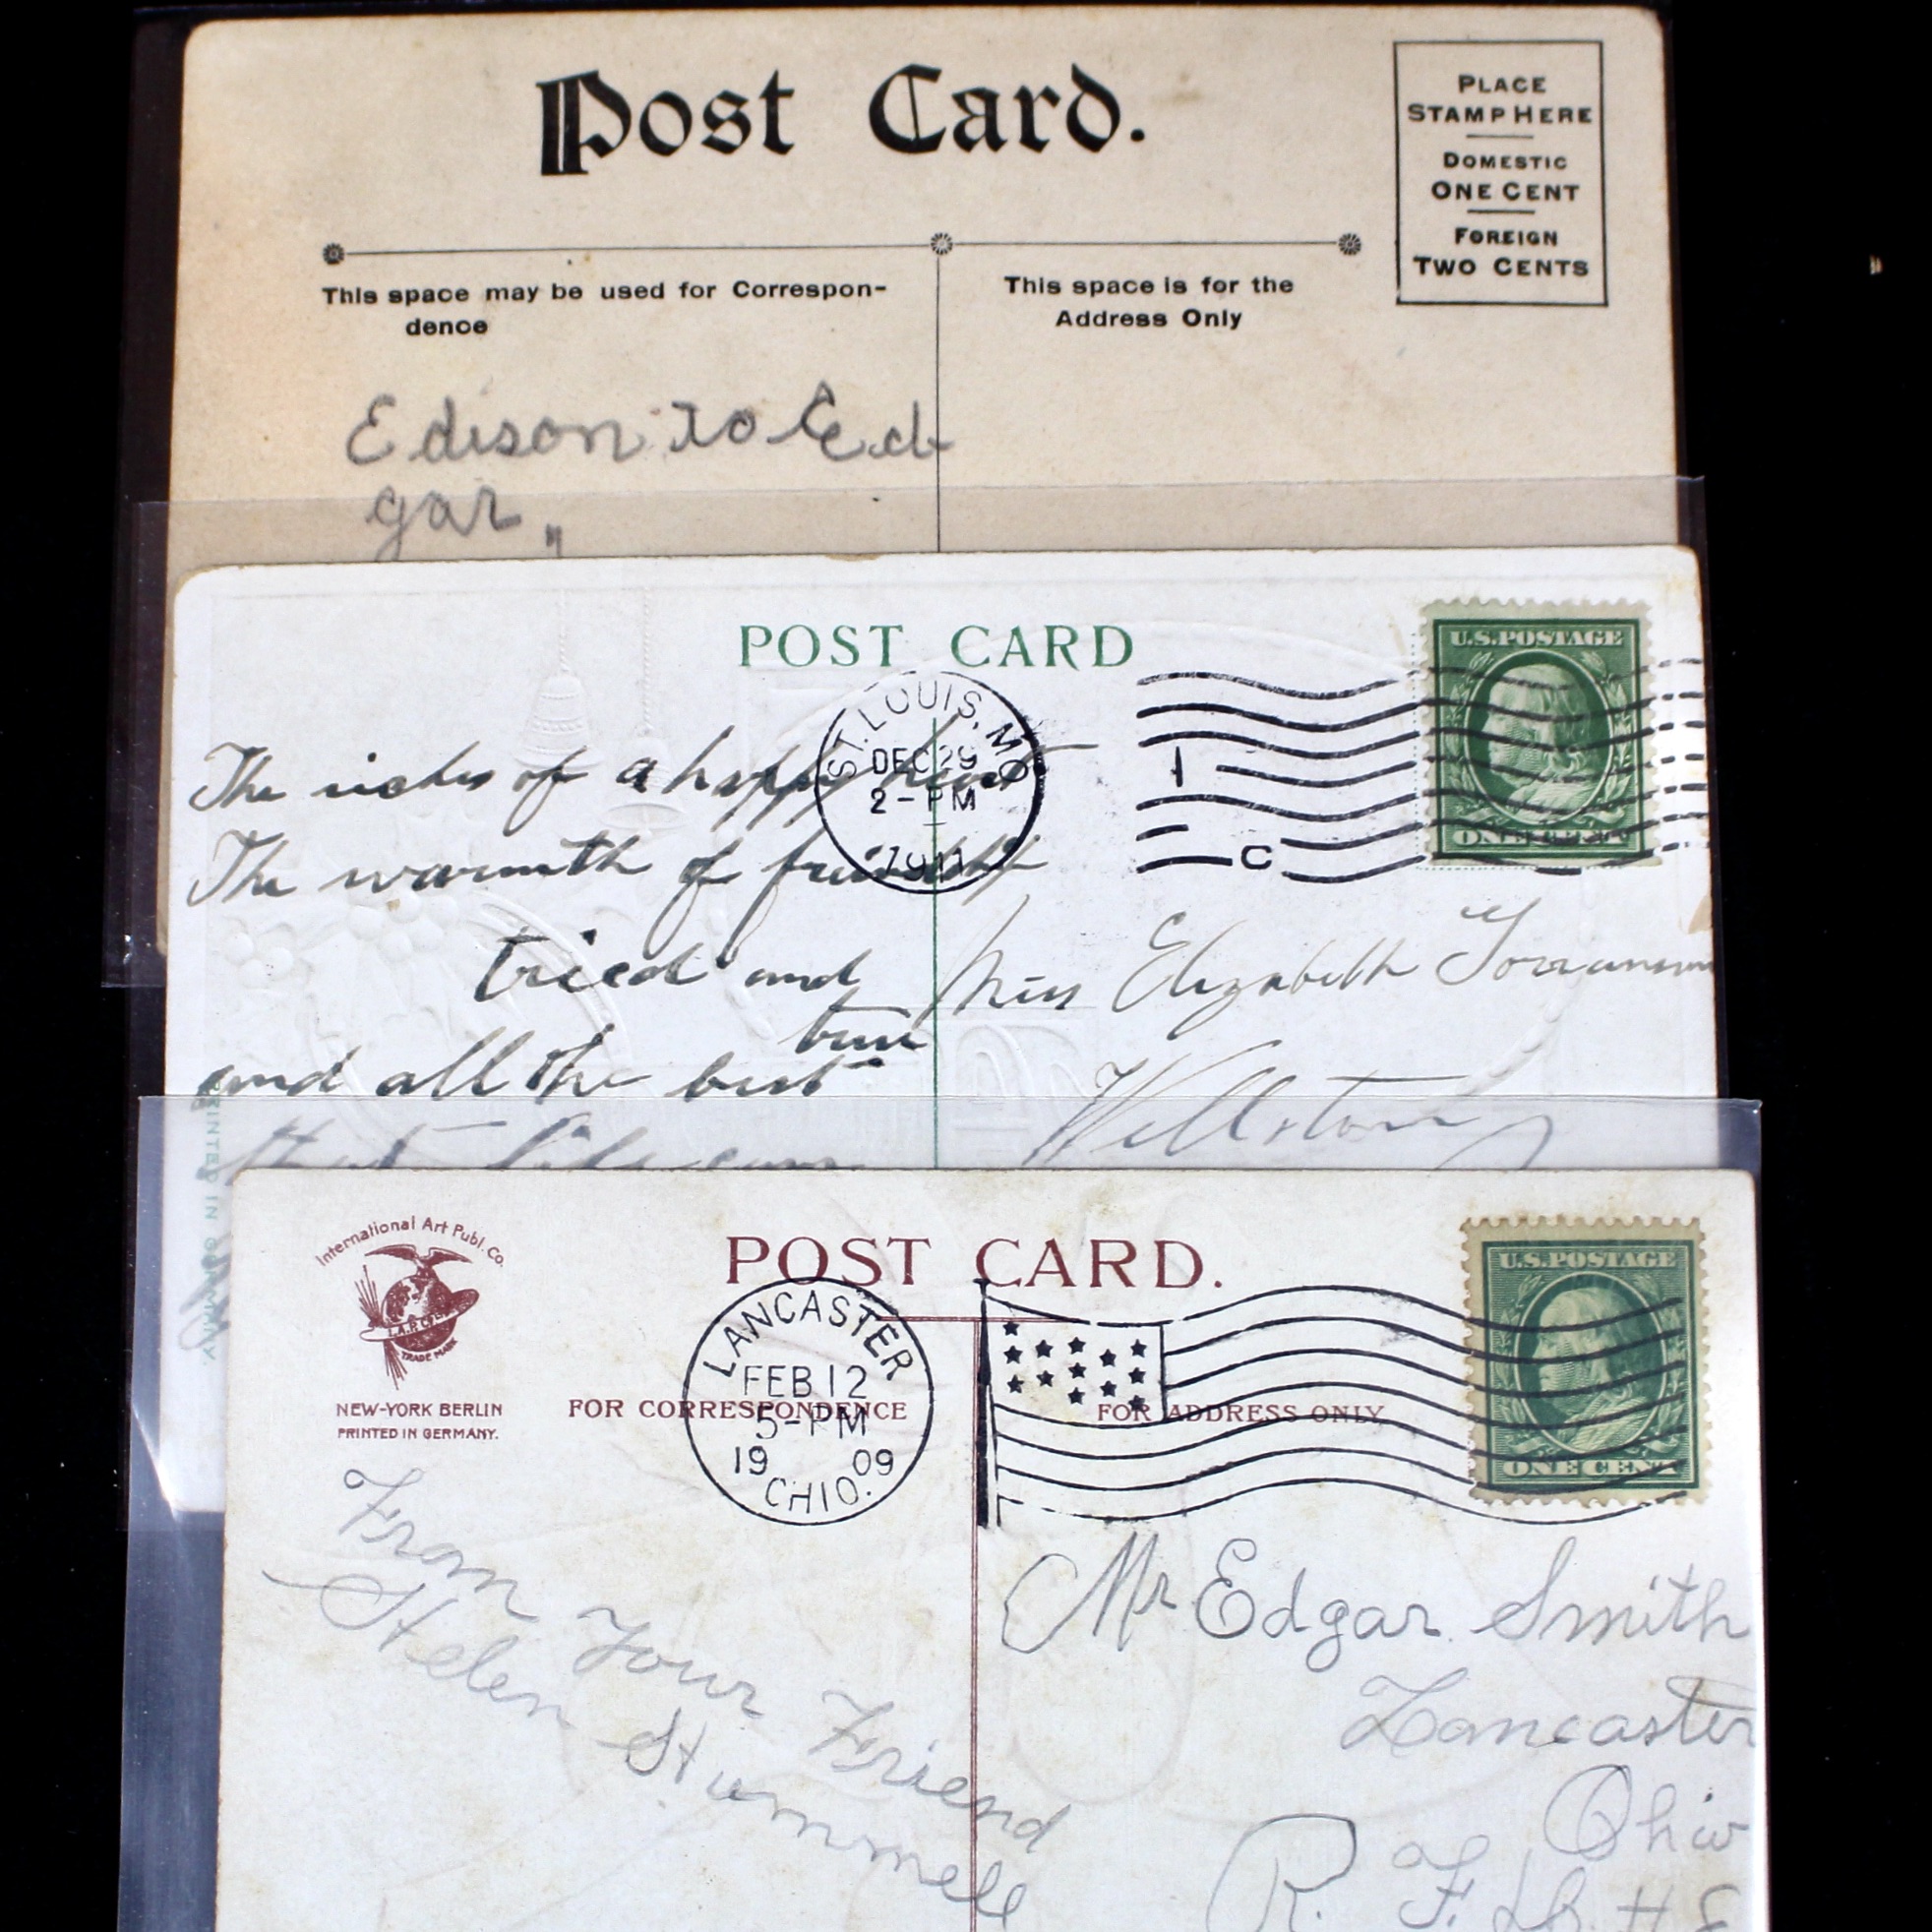 Post Card.
PLACE
STAMP HERE
DOMESTIC
ONE CENT
FOREIGN
TWO CENTS
This space may be used for Correspon-
dence
This space is for the
Address Only
Edison to Ed-
gar "
POST CARD
U.S. POSTAGE
ONE CENT
ST. LOUIS, MO
DEC 29
2-PM
1911
1
C
The riches of a happy heart
The warmth of friendship
tried and
true
and all the best
that life can
Miss Elizabeth
Wellston
PRINTED IN GERMANY.
International Art Publ. Co.
I.A.P.CO.
TRADE MARK
NEW-YORK BERLIN
PRINTED IN GERMANY.
POST CARD.
U.S. POSTAGE
ONE CENT
FOR CORRESPONDENCE
FOR ADDRESS ONLY
LANCASTER
FEB 12
5-PM
19 09
OHIO.
From Your Friend
Helen Stummell
Mr Edgar Smith
Lancaster
Ohio
R. F. D. #